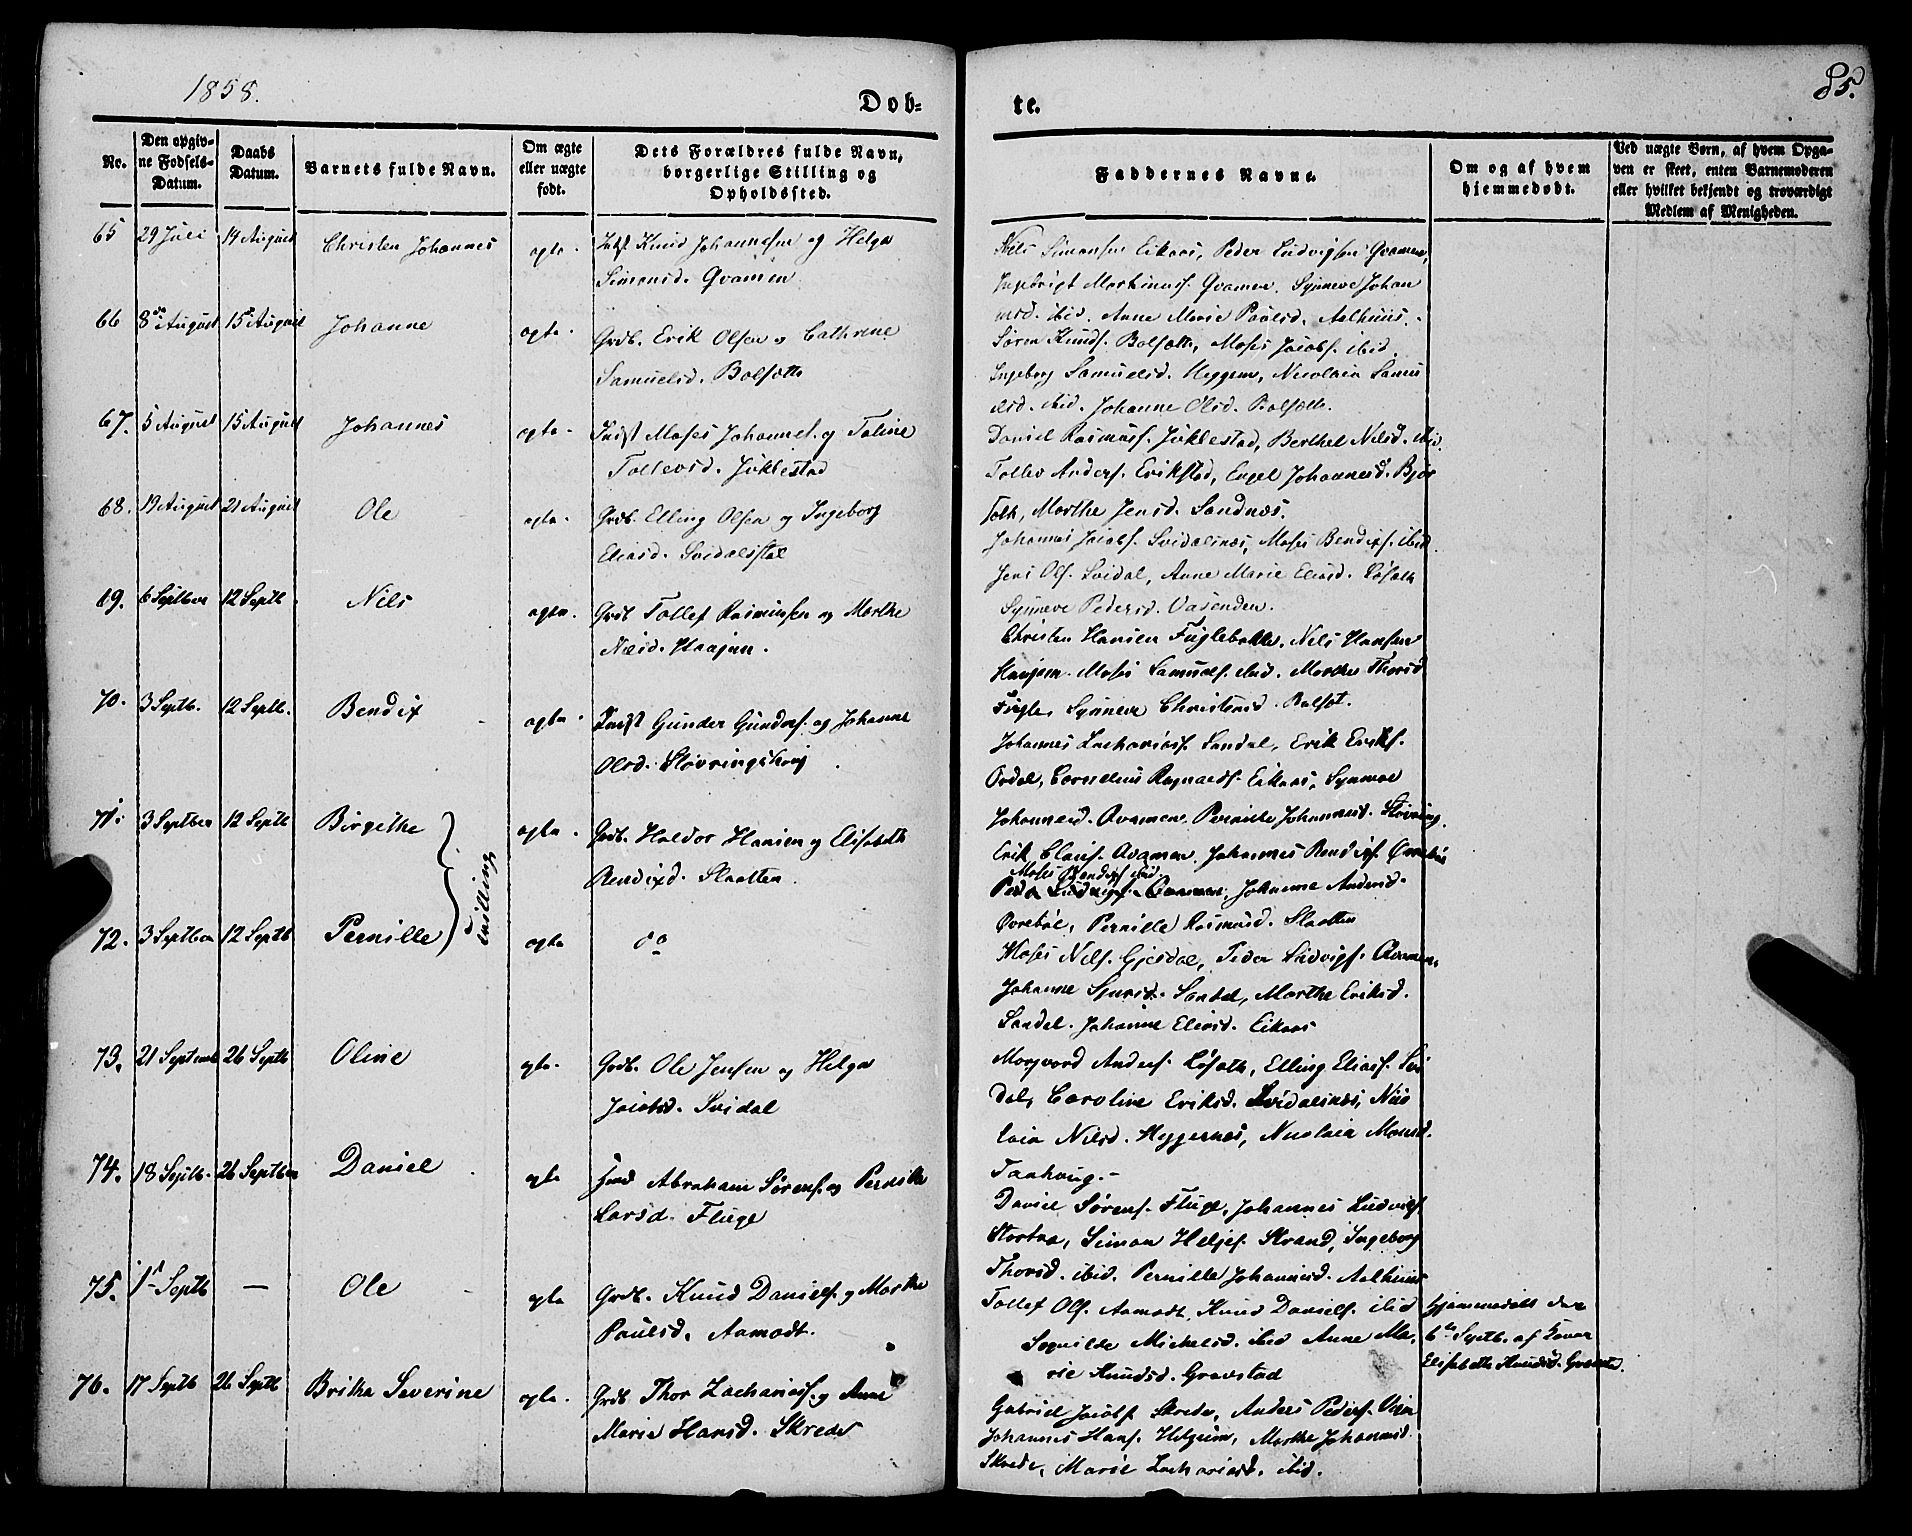 1858.
Døb-
te.
85.
No.
Den opgiv-
ne Fødsels-
Datum.
Daabs
Datum.
Barnets fulde Navn.
Om ægte
eller uægte
født.
Dets Forældres fulde Navn,
borgerlige Stilling og
Opholdssted.
Faddernes Navne.
Om og af hvem
hjemmedøbt.
Ved uægte Børn, af hvem Opga-
ven er skeet, enten Barnemoderen
eller hvilket bekjendt og troværdigt
Medlem af Menigheden.
65 29 Juli 14 August Christen Johannes ægte. Indst Knud Johannesen og Helga
Simonsd. Qvamen
Nils Simonsen Eikaas, Peder Ludvigsen Qvamen,
Ingebrigt Martinusf. Qvamen. Synneve Johan
nesd. ibid. Anne Marie Paulsd. Aalhuus.
66 8de August 15 August Johanne ægte. Grdb. Erik Olsen og Cathrine
Samuelsd. Bolsætte
Søren Knudsf. Bolsætte, Moses Jacobsf. ibid.
Ingeborg Samuelsd. Heggenes, Nicolaia Samu
elsd. ibid. Johanne Olsd. Bolsætte.
67. 5 August 15 August Johannes ægte. Indst Moses Johannesf. og Taline
Tollevsd. Jøklestad
Daniel Rasmusf. Jøklestad, Berthel Nilsd. ibid.
Tollev Andersf. Erikstad, Engel Johannesd. Bjør
68. 19 August 21 August Ole ægte. Grdb. Elling Olsen og Ingeborg
Eliasd. Svidalsstøl
Johannes Jacobsf. Svidalsnæs, Moses Bendixf. ibid.
tolk, Marthe Jensd. Sandnæs.
Jens Olsf. Svidal, Anne Marie Eliasd. Løsæth
Synneve Pedersd. Vasenden.
69. 6 Septber 12 Septb. Nils ægte. Grdb Tollef Rasmusen og Marthe
Nilsd. Haajen.
Christen Hansen Fuglebakke, Nils Hansen
Haajem. Moses Samuelsf. ibid. Marthe Thorsd
Fugle, Synneve Christensd. Bolset.
70. 3 Septb. 12 Septb. Bendix ægte. Indst Gunder Gundersf. og Johanne
Olsd. Støvringshoug
Johannes Zachariasf. Sandal, Erik Eriksf.
Ordal, Cornelius Ragnaldsf. Eikaas, Synneve
Johannesd. Qvamen. Pernille Johannesd. Støvring.
71. 3 Septber 12 Septb Birgithe ægte. Grdb. Haldor Hansen og Elisabeth
Bendixd. Slaatten.
Erik Clausf. Qvamen. Johannes Bendixf. Øvrebø
Moses Bendixf ibid.
Peder Ludvigsf. Qvamen. Johanne Andersd.
Øvrebøe, Pernille Rasmusd. Slaatten
tvilling
72. 3 Septber 12 Septb Pernille ægte do
Moses Nilsf. Gjesdal, Peder Ludvigsf. Qvamen.
Johanne Sjursd. Sandal, Marthe Eriksd.
Sandal. Johanne Eliasd. Eikaas
73. 21 Septemb 26 Septb Oline ægte. Grdb. Ole Jensen og Helga
Jacobsd. Svidal
Morgvard Andersf. Løsæth, Elling Eliasf. Svi
dal, Caroline Eriksd. Svidalsnæs, Nico
laia Nilsd. Heggenæs, Nicolaia Monsd.
Taahoug.
74. 18 Septb. 26 Septber Daniel ægte Huusmd Abraham Sørensf. og Pernille
Larsd. Fluge
Daniel Sørensf. Fluge, Johannes Ludvigf.
Stortræ, Simon Heljef. Strand, Ingeborg
Thorsd. ibid. Pernille Johannesd. Aalhuus
75. 1st Septb — Ole ægte Grdb. Knud Danielsf. og Marthe
Paulsd. Aamodt.
Tollef Olsf. Aamodt. Knud Danielsf. ibid
Sognilde Mickelsd. ibid Anne Ma-
rie Knudsd. Gravstad
Hjemmedøbt den
6te Septb. af Kone
Elisabeth Knudsd. Gravstad.
76. 17 Septb 26 Septb Brithe Severine ægte. Grdb Thor Zachariasf. og Anne
Marie Hansd. Skrede
Gabriel Jacobsf Skrede, Anders Pedersf. Vien
Johannes Hansf. Helgeim, Marthe Johannesd.
Skrede, Marie Zachariasd. ibid.